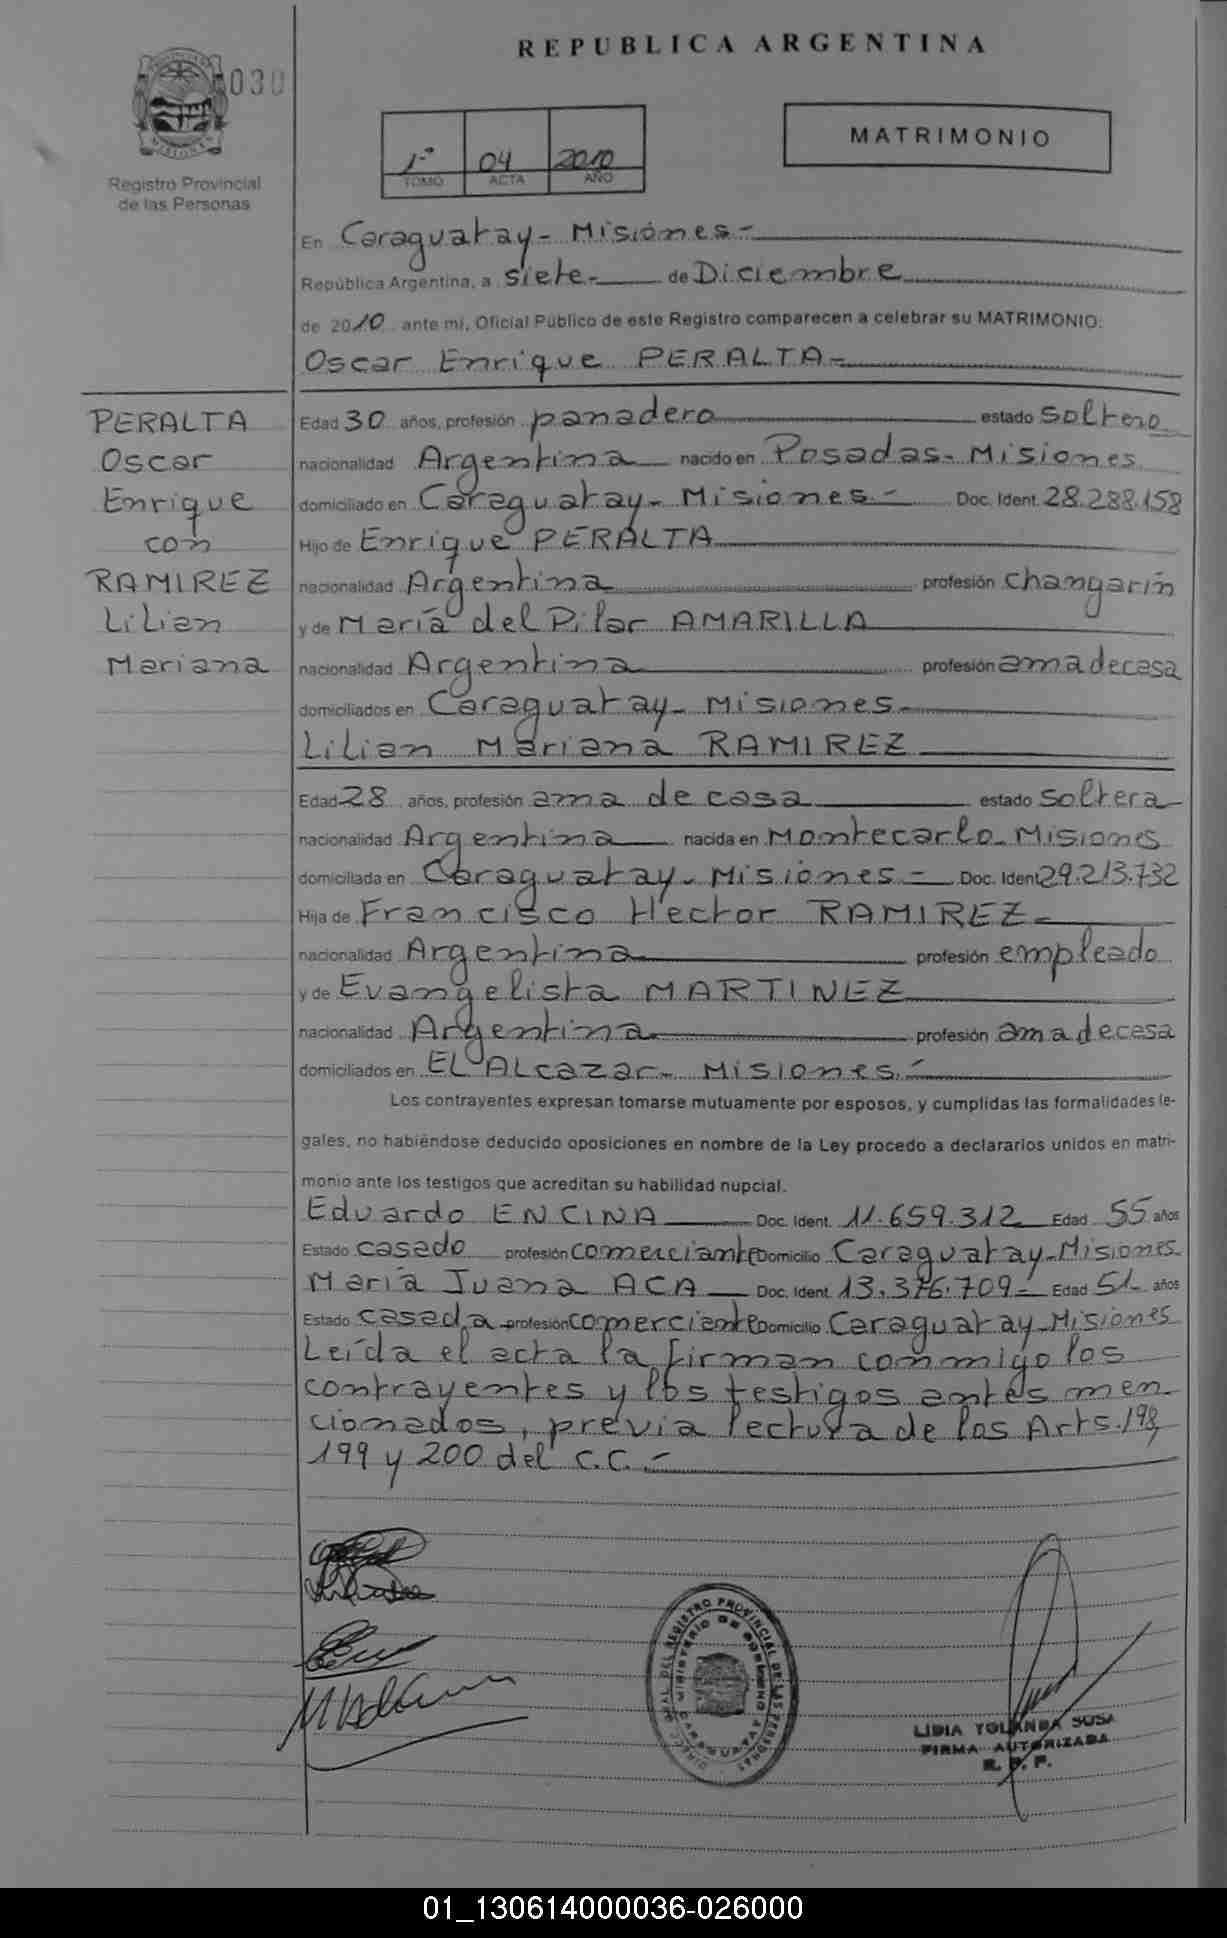 REPUBLICA ARGENTINA
030
Registro Provincial
de las Personas
1º 04 2010
TOMO ACTA AÑO
MATRIMONIO
En Caraguatay - Misiones -
República Argentina, a siete - de Diciembre
de 2010 ante mi, Oficial Público de este Registro comparecen a celebrar su MATRIMONIO:
Oscar Enrique PERALTA -
PERALTA
Oscar
Enrique
con
RAMIREZ
Lilian
Mariana
Edad 30 años, profesión panadero estado soltero
nacionalidad Argentina nacido en Posadas - Misiones
domiciliado en Caraguatay - Misiones - Doc. Ident. 28.288.158
Hijo de Enrique PERALTA
nacionalidad Argentina profesión changarín
y de María del Pilar AMARILLA
nacionalidad Argentina profesión ama de casa
domiciliados en Caraguatay - Misiones -
Lilian Mariana RAMIREZ
Edad 28 años, profesión ama de casa estado soltera
nacionalidad Argentina nacida en Montecarlo - Misiones
domiciliada en Caraguatay - Misiones - Doc. Ident 29.213.732
Hija de Francisco Hector RAMIREZ -
nacionalidad Argentina profesión empleado
y de Evangelista MARTINEZ
nacionalidad Argentina profesión ama de casa
domiciliados en EL ALcazar - Misiones. -
Los contrayentes expresan tomarse mutuamente por esposos, y cumplidas las formalidades le-
gales, no habiéndose deducido oposiciones en nombre de la Ley procedo a declararlos unidos en matri-
monio ante los testigos que acreditan su habilidad nupcial.
Eduardo ENCINA Doc. Ident. 11.659.312 Edad 55 años
Estado casado profesión comerciante Domicilio Caraguatay - Misiones
María Juana ACA Doc. Ident. 13.376.709 - Edad 51 años
Estado casada profesión comerciante Domicilio Caraguatay - Misiones
Leída el acta la firman conmigo los
contrayentes y los testigos antes men
cionados, previa lectura de los Arts. 198,
199 y 200 del C.C. -
DIRECC. GRAL DEL REGISTRO PROVINCIAL DE LAS PERSONAS
MINISTERIO DE GOBIERNO
CARAGUATAY
LIDIA YOLANDA SUSA
FIRMA AUTORIZADA
R. P. P.
01_130614000036-026000